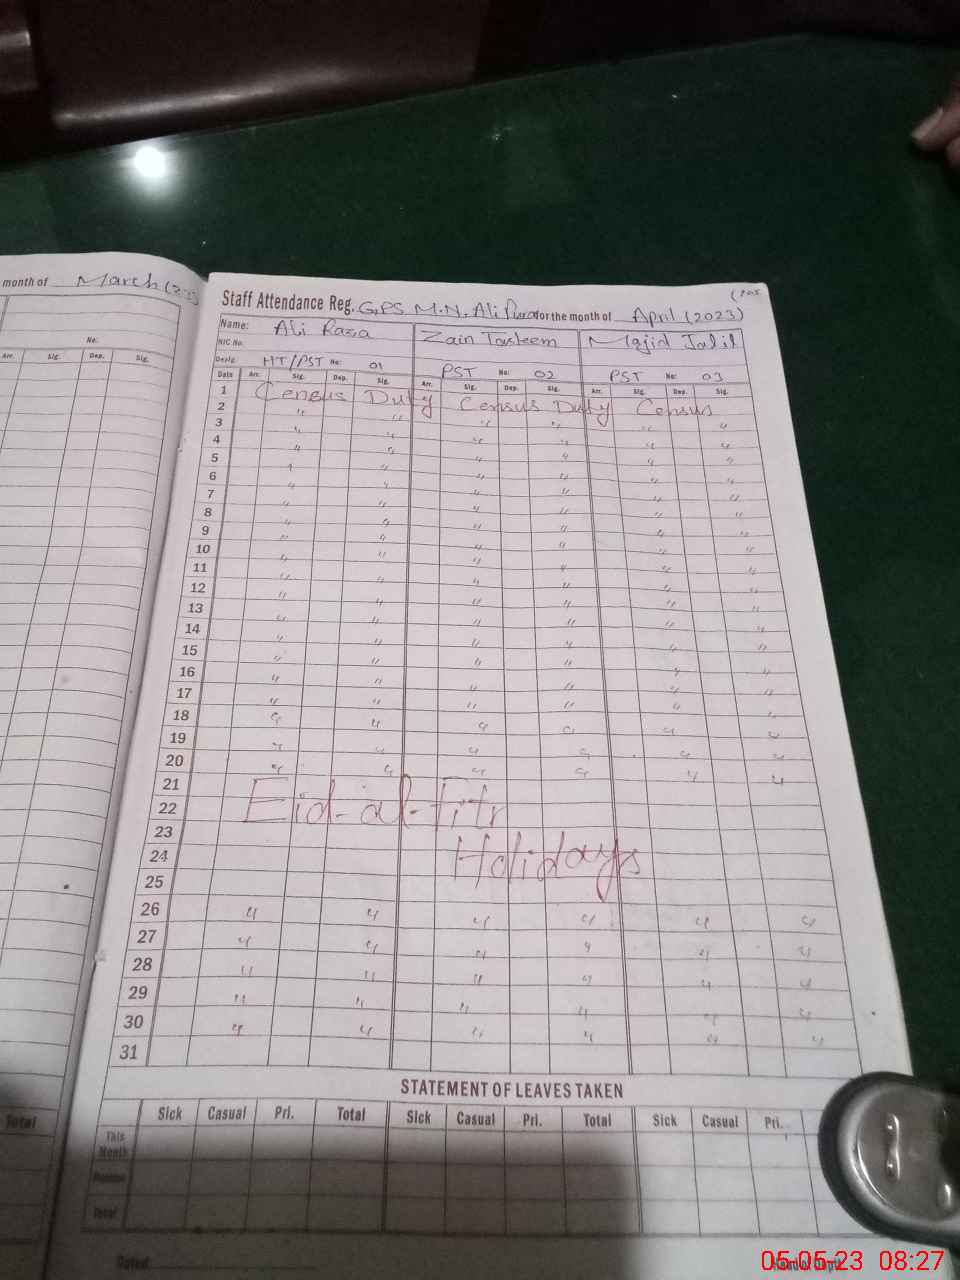 month of March (23)
No:
Arr. Sig. Dep. Sig.
Total
Staff Attendance Reg. G.P.S M.N. Ali Pura for the month of April (2023)
Name: Ali Raza Zain Tasleem Majid Jalil
NIC No.
Desig. HT/PST No: 01 PST No: 02 PST No: 03
Date Arr. Sig. Dep. Sig. Arr. Sig. Dep. Sig. Arr. Sig. Dep. Sig.
1 Census Duty Census Duty Census
2 " " " " " "
3 " " " " " "
4 " " " " " "
5 " " " " " "
6 " " " " " "
7 " " " " " "
8 " " " " " "
9 " " " " " "
10 " " " " " "
11 " " " " " "
12 " " " " " "
13 " " " " " "
14 " " " " " "
15 " " " " " "
16 " " " " " "
17 " " " " " "
18 " " " " " "
19 " " " " " "
20 " " " " " "
21
22 Eid-al-Fitr
23
24 Holidays
25
26 " " " " " "
27 " " " " " "
28 " " " " " "
29 " " " " " "
30 " " " " " "
31
STATEMENT OF LEAVES TAKEN
Sick Casual Pri. Total Sick Casual Pri. Total Sick Casual Pri.
This Month
Previous
Total
Dated
Head of Deptt.
05-05-23 08:27